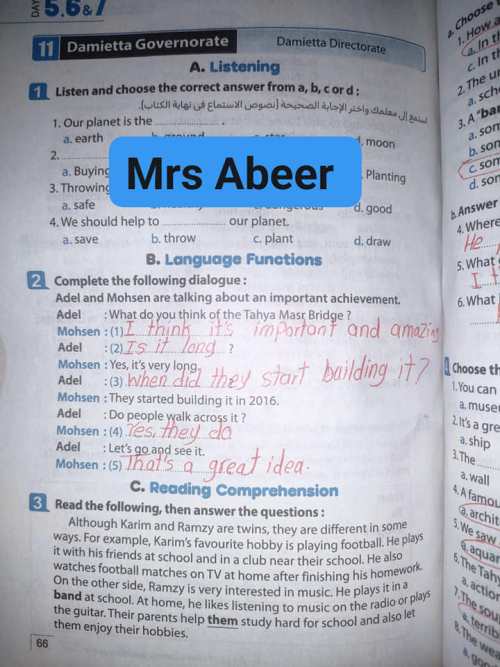 DAY 5,6&7
11 Damietta Governorate Damietta Directorate
A. Listening
1 Listen and choose the correct answer from a, b, c or d :
استمع إلى معلمك واختر الإجابة الصحيحة (نصوص الاستماع فى نهاية الكتاب).
1. Our planet is the .................... .
a. earth b. ground c. star d. moon
2. ....................
a. Buying Planting
Mrs Abeer
3. Throwing
a. safe c. dangerous d. good
4. We should help to .................... our planet.
a. save b. throw c. plant d. draw
B. Language Functions
2 Complete the following dialogue :
Adel and Mohsen are talking about an important achievement.
Adel : What do you think of the Tahya Masr Bridge ?
Mohsen : (1) I think it's important and amazing
Adel : (2) Is it long ?
Mohsen : Yes, it's very long.
Adel : (3) When did they start bailding it?
Mohsen : They started building it in 2016.
Adel : Do people walk across it ?
Mohsen : (4) Yes, they do
Adel : Let's go and see it.
Mohsen : (5) That's a great idea.
C. Reading Comprehension
3 Read the following, then answer the questions :
Although Karim and Ramzy are twins, they are different in some
ways. For example, Karim's favourite hobby is playing football. He plays
it with his friends at school and in a club near their school. He also
watches football matches on TV at home after finishing his homework.
On the other side, Ramzy is very interested in music. He plays it in a
band at school. At home, he likes listening to music on the radio or plays
the guitar. Their parents help them study hard for school and also let
them enjoy their hobbies.
66
a. Choose
1. How
a. In th
c. In th
2. The u
a. sch
3. A "ban
a. son
b. son
c. son
d. son
b. Answer
4. Where
He
5. What
I t
6. What
I
4 Choose th
1. You can
a. museu
2. It's a gre
a. ship
3. The
a. wall
4. A famou
a. archit
5. We saw
a. aquar
6. The Tah
a. action
7. The soup
a. terrib
8. The wea
a. go